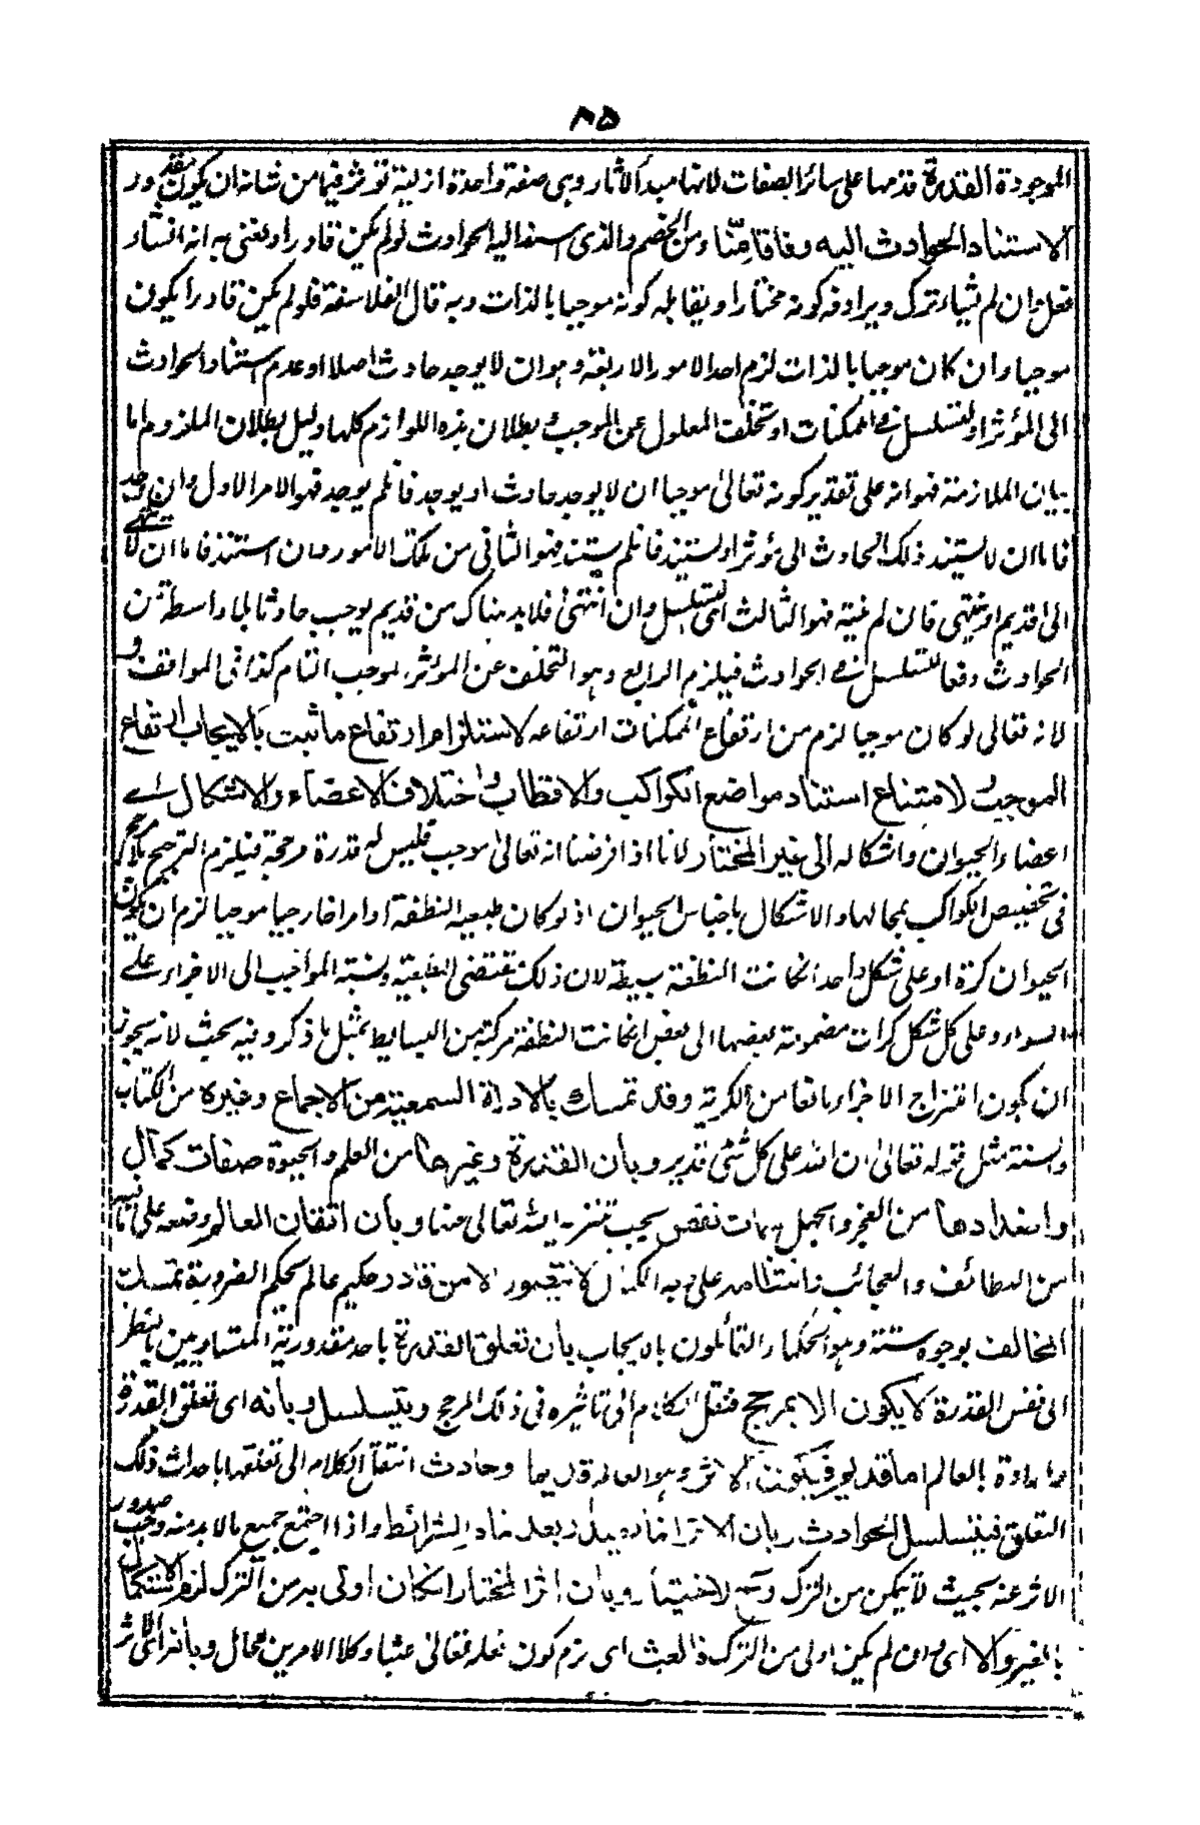 ٨٥
الموجودة القدرة قدمها على سائر الصفات لانها مبدأ الآثار وهى صفة واحدة ازلية تؤثر فيما من شانه ان يكون مقدور
لاستناد الحوادث اليه وفاقا منّا ومن الخصم والذى استند اليه الحوادث لو لم يكن قادرا ونعنى به انه ان شاء
فعل وان لم يشاء ترك ويرادفه كونه مختارا ويقابله كونه موجبا بالذات وبه قال الفلاسفة فلو لم يكن قادرا يكون
موجبا وان كان موجبا بالذات لزم احد الامور الاربعة وهو ان لا يوجد حادث اصلا او عدم استناد الحوادث
الى المؤثر او تسلسل فى الممكنات او تخلف المعلول عن الموجب وبطلان هذه اللوازم كلها دليل بطلان الملزوم اما
بيان الملازمة فهو انه على تقدير كونه تعالى موجبا ان لا يوجد حادث او يوجد فان لم يوجد فهو الامر الاول وان وجد
فاما ان لا يستند ذلك الحادث الى مؤثر او يستند فان لم يستند فهو الثانى من تلك الامور وان استند فاما ان لا ينتهى
الى قديم او ينتهى فان لم ينته فهو الثالث اى التسلسل وان انتهى فلا بد هناك من قديم يوجب حادثا بلا واسطة من
الحوادث دفعا للتسلسل فى الحوادث فيلزم الرابع وهو التخلف عن المؤثر الموجب التام كذا فى المواقف و
لانه تعالى لو كان موجبا لزم من ارتفاع الممكنات ارتفاعه لاستلزام ارتفاع ما ثبت بالايجاب ارتفاع
الموجب و لامتناع استناد مواضع الكواكب والاقطاب واختلاف الاعضاء والاشكال اے
اعضاء الحيوان واشكاله الى غير المختار لانا اذا فرضنا انه تعالى موجب فليس له قدرة مرجحة فيلزم الترجيح بلا مرجح
فى تخصيص الكواكب بمحالها والاشكال باجناس الحيوان اذ لو كان طبيعة النطفة او امرا خارجيا موجبا لزم ان يكون
الحيوان كرة او على شكل واحد انكانت النطفة بسيطة لان ذلك مقتضى الطبيعة ونسبة الموجب الى الاجزاء على
السواء وعلى كل شكل كرات مضمومة بعضها الى بعض انكانت النطفة مركبة من البسايط بمثل ما ذكر وفيه بحث لانه يجوز
ان يكون امتزاج الاجزاء مانعا من الكرية وقد تمسك بالادلة السمعية من الاجماع وغيره من الكتاب
والسنة مثل قوله تعالى ان الله على كل شئ قدير وبان القدرة وغيرها من العلم والحيوة صفات كمال
واضدادها من العجز والجهل سمات نقص يجب تنزيه الله تعالى عنها وبان اتقان العالم وصنعه على ما فيه
من اللطائف والعجائب وانتظامه على وجه الكمال لا يتصور الا من قادر حكيم عالم بحكم الضرورة تمسك
المخالف بوجوه ستة وهو الحكماء القائلون بالايجاب بان تعلق القدرة باحد مقدوريه المتساويين بالنظر
الى نفس القدرة لا يكون الا بمرجح فننقل الكلام الى تاثيره فى ذلك المرجح ويتسلسل وبانه اى تعلق القدرة
والارادة بالعالم اما قديم فيكون الاثر وهو العالم قديما وحادث انتقل الكلام الى تعلقها باحداث ذلك
التعلق فيتسلسل الحوادث وبان الاثر بعد الشرائط واذا اجتمع جميع ما لا بد منه وجب صدور
الاثر عنه بحيث لا يتمكن من الترك لا اختيار وبان اثر المختار انكان اولى به من الترك لزم الاستكمال
بالغير والا اى وان لم يكن اولى من الترك فالعبث اى لزم كون فعله تعالى عبثا وكلا الامرين محال وبانه اى الاثر